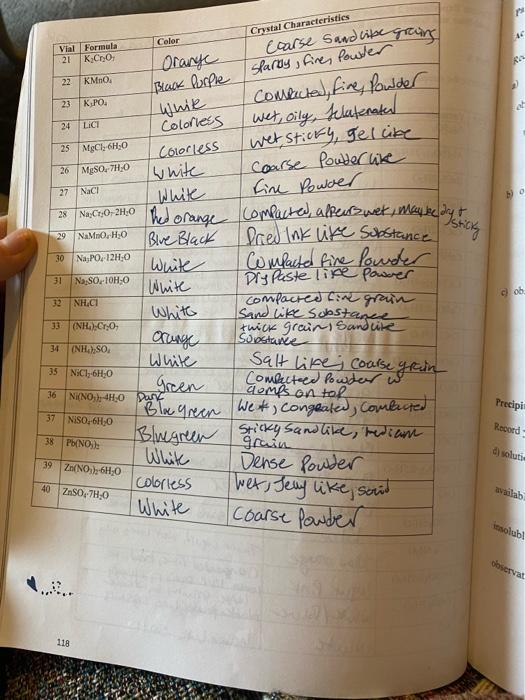 Vial Formula Color Crystal Characteristics
21 K₂Cr₂O₇ Orange Coarse Sandlike grains
22 KMnO₄ Black Purple shards, fine, Powder
23 K₃PO₄ White Compacted, fine, Powder
24 LiCl Colorless Wet, oily,
25 MgCl₂·6H₂O Colorless wet, sticky, gel like
26 MgSO₄·7H₂O White Coarse Powder like
27 NaCl White Fine Powder
28 Na₂Cr₂O₇·2H₂O Red orange Compacted, appears wet, maybe dry + sticky
29 NaMnO₄·H₂O Blue Black Dried Ink like Substance
30 Na₃PO₄·12H₂O White Compacted fine Powder
31 Na₂SO₄·10H₂O White Dry Paste like Powder
32 NH₄Cl White compacted fine grain
Sand like Substance
33 (NH₄)₂Cr₂O₇ Orange thick grain, Sandlike
Substance
34 (NH₄)₂SO₄ White Salt like, coarse grain
35 NiCl₂·6H₂O green Compacted Powder w
clumps on top
36 Ni(NO₃)₂·4H₂O Dark
Blue green Wet, congealed, Compacted
37 NiSO₄·6H₂O Blue green Sticky Sand like, medium
grain
38 Pb(NO₃)₂ White Dense Powder
39 Zn(NO₃)₂·6H₂O Colorless Wet, Jelly like, solid
40 ZnSO₄·7H₂O White Coarse Powder
118
b)
c) ob
Precipi
Record
d) soluti
availab
insolubl
observat